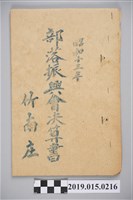 昭和十三年
部落振興會決算書
竹南庄
2019.015.0216